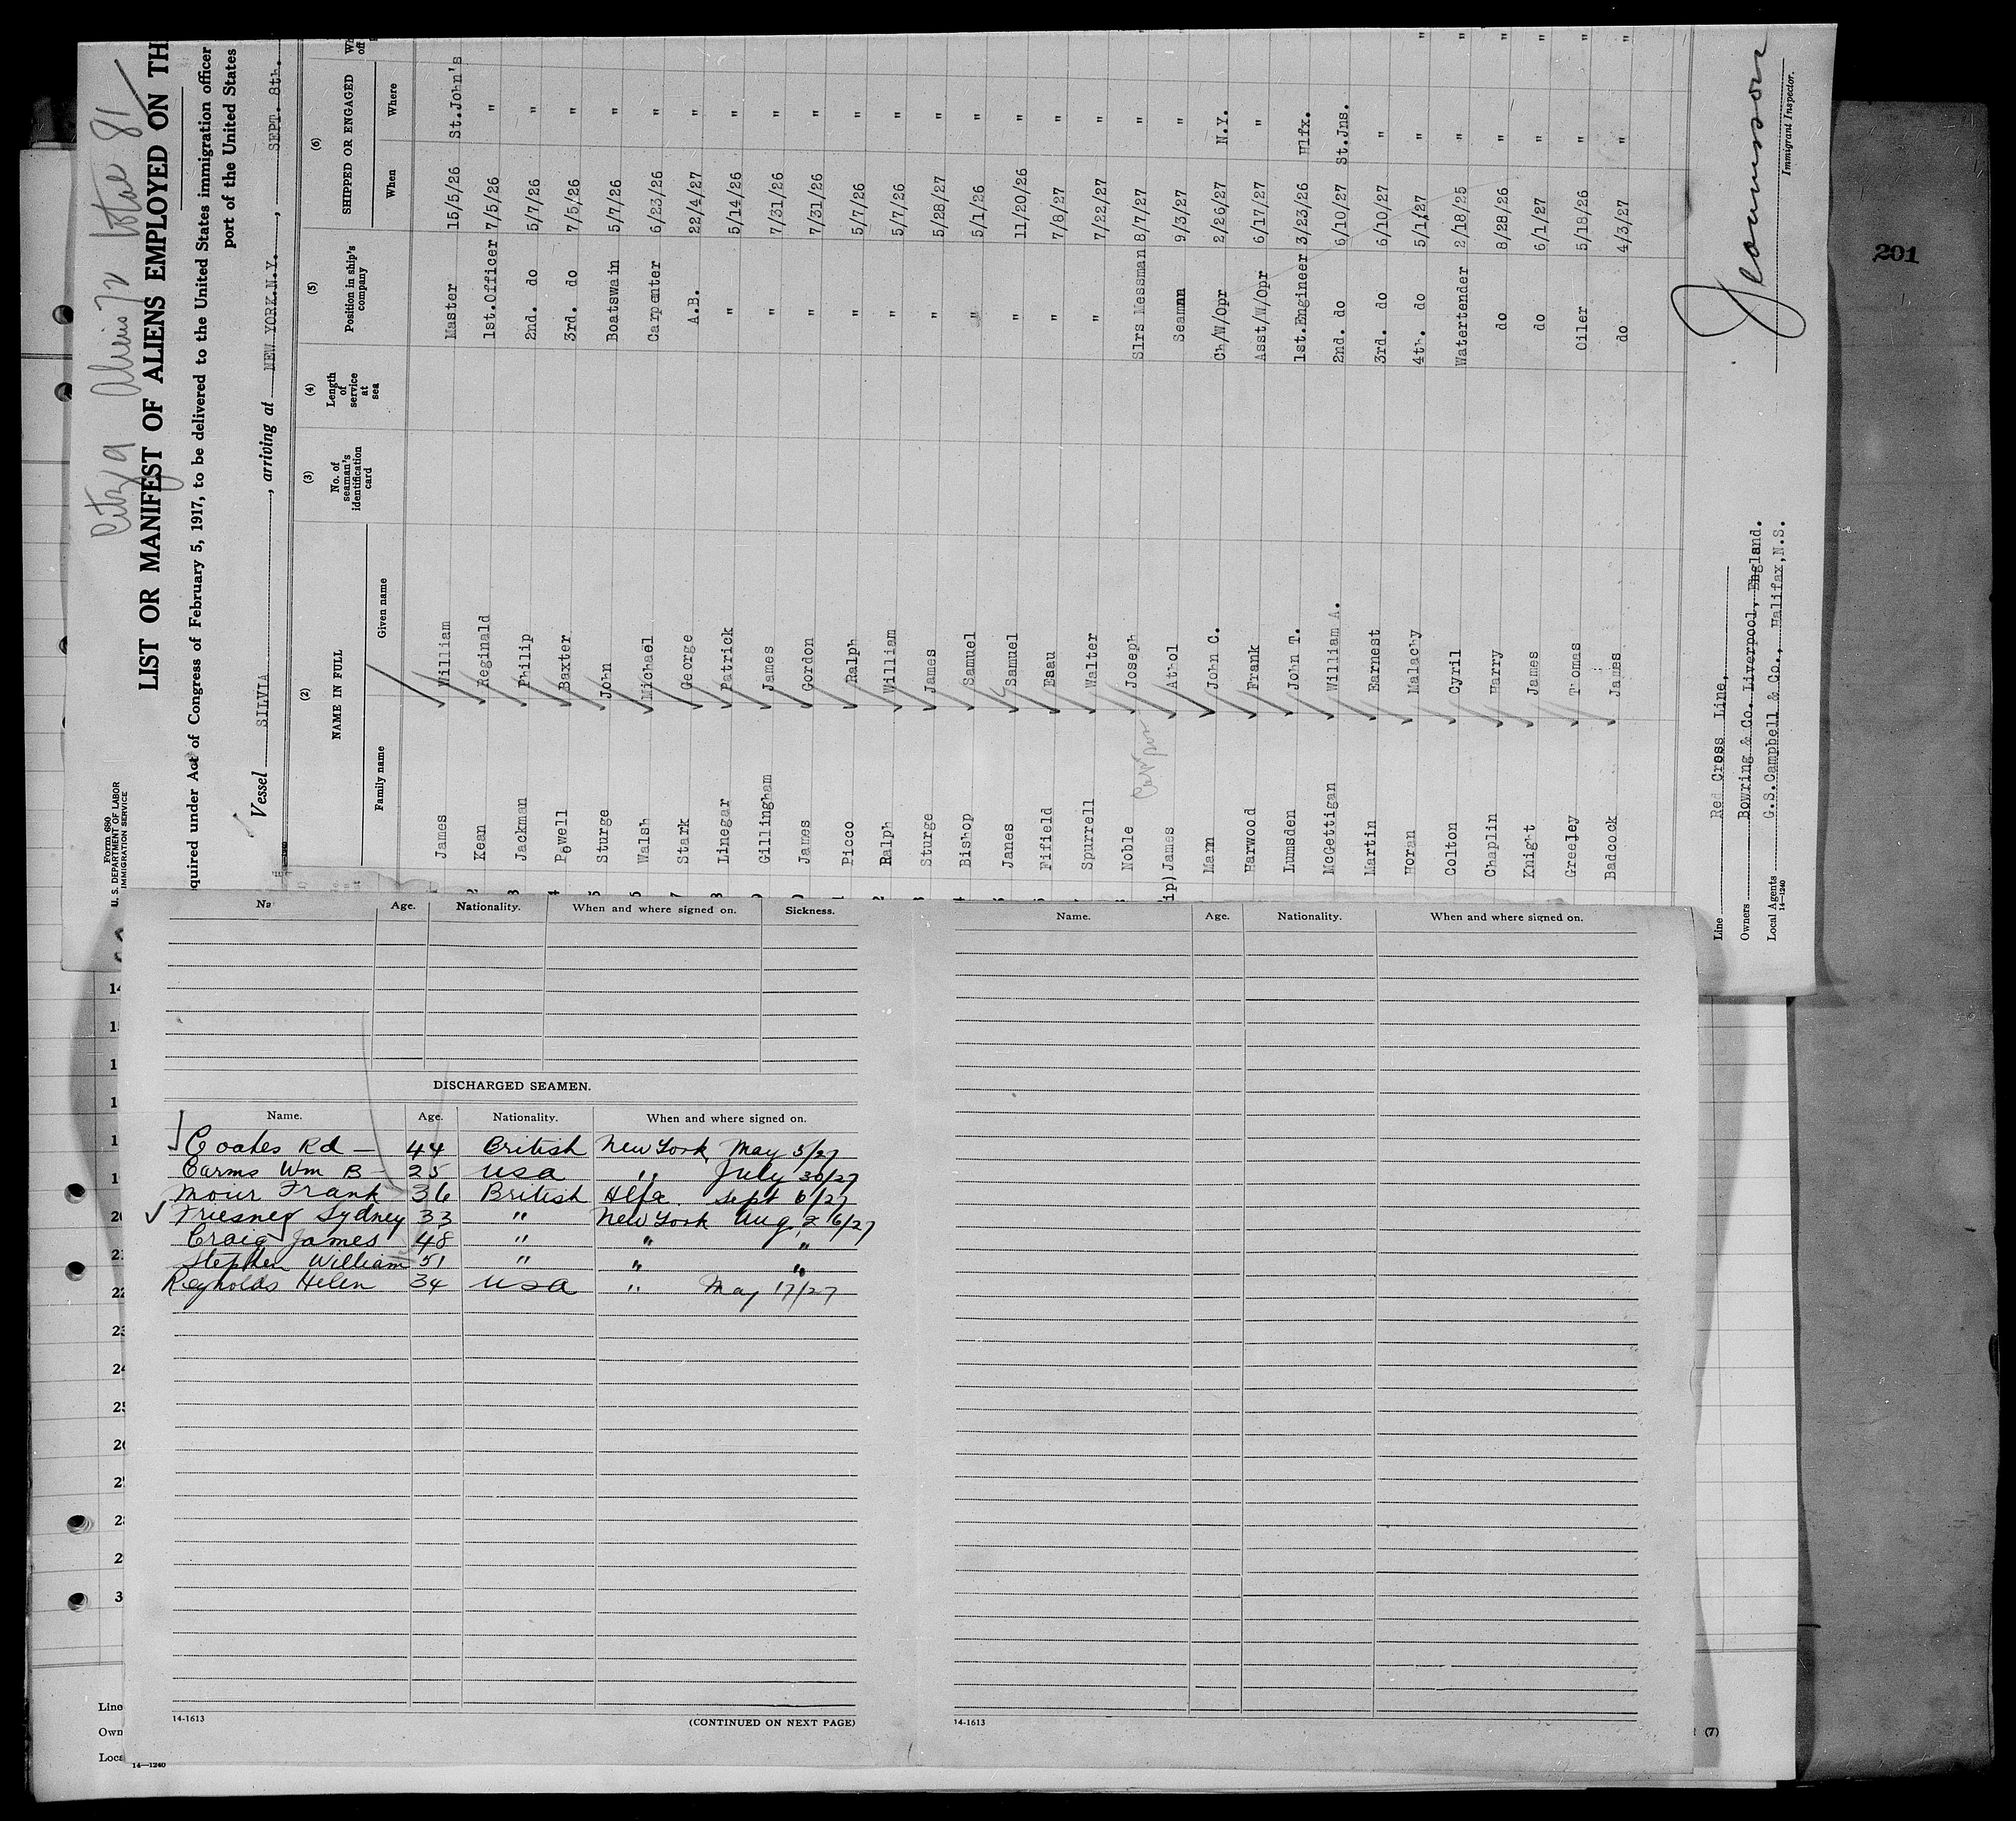 Citz 9 Aliens 72 total 81
Form 680
U. S. DEPARTMENT OF LABOR
IMMIGRATION SERVICE
LIST OR MANIFEST OF ALIENS EMPLOYED ON TH
quired under Act of Congress of February 5, 1917, to be delivered to the United States immigration officer
port of the United States
Vessel SILVIA, arriving at NEW YORK.N.Y., SEPT. 8th.
(2) (3) (4) (5) (6)
NAME IN FULL No. of seaman's identification card Length of service at sea Position in ship's company SHIPPED OR ENGAGED
Family name Given name When Where
James William Master 15/5/26 St.John's
Kean Reginald 1st.Officer 7/5/26 "
Jackman Philip 2nd. do 5/7/26 "
Powell Baxter 3rd. do 7/5/26 "
Sturge John Boatswain 5/7/26 "
Walsh Michael Carpenter 6/23/26 "
Stark George A.B. 22/4/27 "
Linegar Patrick " 5/14/26 "
Gillingham James " 7/31/26 "
James Gordon " 7/31/26 "
Picco Ralph " 5/7/26 "
Ralph William " 5/7/26 "
Sturge James " 5/28/27 "
Bishop Samuel " 5/1/26 "
Janes Samuel " 11/20/26 "
Fifield Esau " 7/8/27 "
Spurrell Walter " 7/22/27 "
Noble Joseph Slrs Messman 8/7/27 "
ip) James Athol Seamnn 9/3/27 "
Mann John C. Ch/W/Opr 2/26/27 N.Y.
Harwood Frank Asst/W/Opr 6/17/27 "
Lumsden John T. 1st.Engineer 3/23/26 Hlfx.
McGettigan William A. 2nd. do 6/10/27 St.Jns.
Martin Earnest 3rd. do 6/10/27 "
Horan Malachy 4th. do 5/1/27 "
Colton Cyril Watertender 2/18/25 "
Chaplin Harry do 8/28/26 "
Knight James do 6/1/27 "
Greeley Thomas Oiler 5/18/26 "
Badcock James do 4/3/27 "
Line Red Cross Line,
Owners Bowring & Co. Liverpool, England.
Local Agents C.S.Campbell & Co., Halifax,N.S.
14-1240
Immigrant Inspector.
201
Age. Nationality. When and where signed on. Sickness.
DISCHARGED SEAMEN.
Name. Age. Nationality. When and where signed on.
Coates Rd — 44 British New York May 5/27
Carms Wm B - 25 USA " July 30/27
Moir Frank 36 British Hlfx Sept 6/27
Friesner Sydney 33 " New York Aug 26/27
Craig James 48 " " "
Stephen William 51 " " "
Reynolds Helen 34 USA " May 17/27
14-1613
(CONTINUED ON NEXT PAGE)
Name. Age. Nationality. When and where signed on.
14-1613
(7)
22
23
24
14—1240